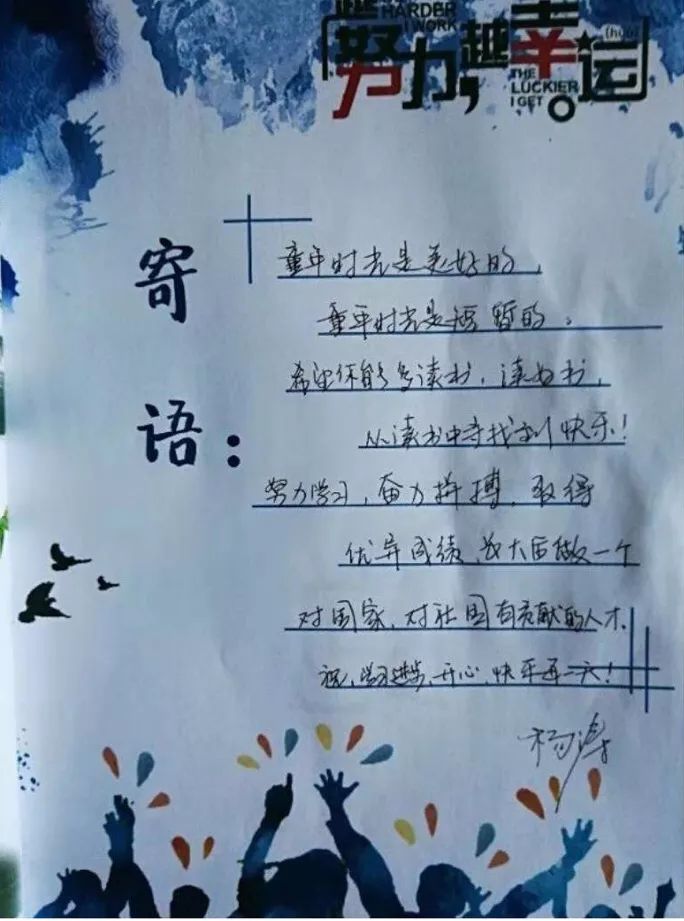 HARDER
WORK
努力,越幸运。
THE
LUCKIER
I GET
寄语:
童年时光是美好的,
童年时光是短暂的。
希望你能多读书,读好书,
从读书中寻找到快乐!
努力学习,奋力拼搏,取得
优异成绩,长大后做一个
对国家,对社国有贡献的人才.
祝,学习进步,开心,快乐每一天!
杨涛